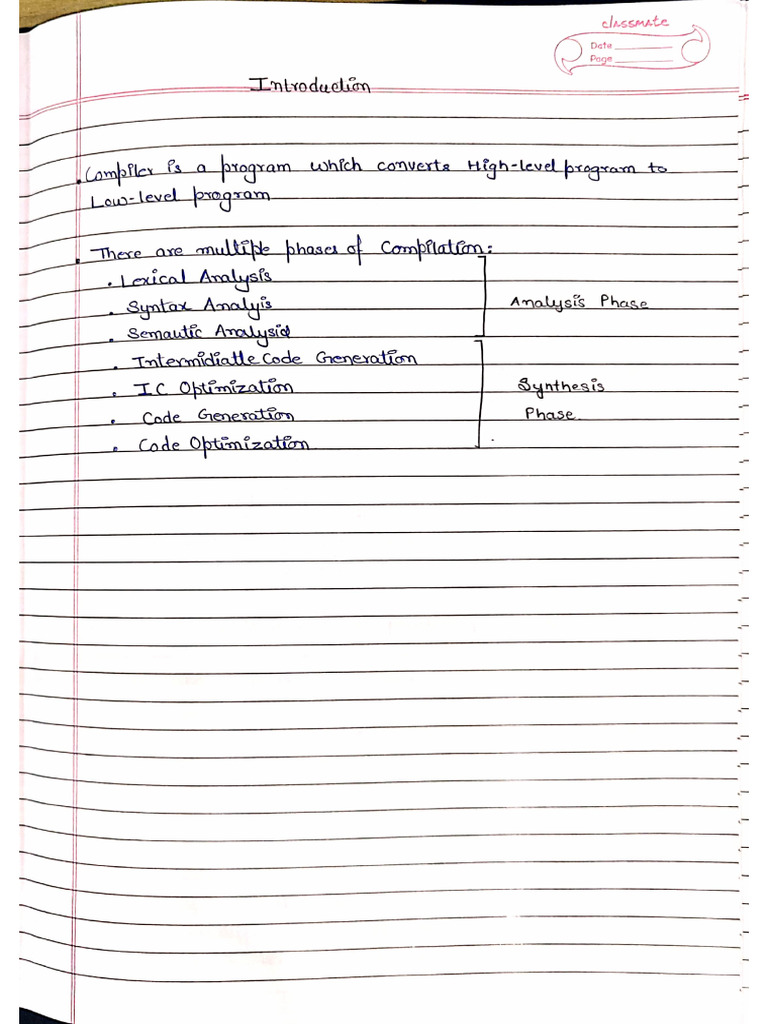 classmate
Date
Page
Introduction
• Compiler is a program which converts High-level program to
Low-level program
• There are multiple phases of Compilation:
• Lexical Analysis
• Syntax Analyis
Analysis Phase
• Semautic Analysid
• Intermidiatte Code Generation
• IC Optimization
Synthesis
• Code Generation
Phase.
• Code Optimization